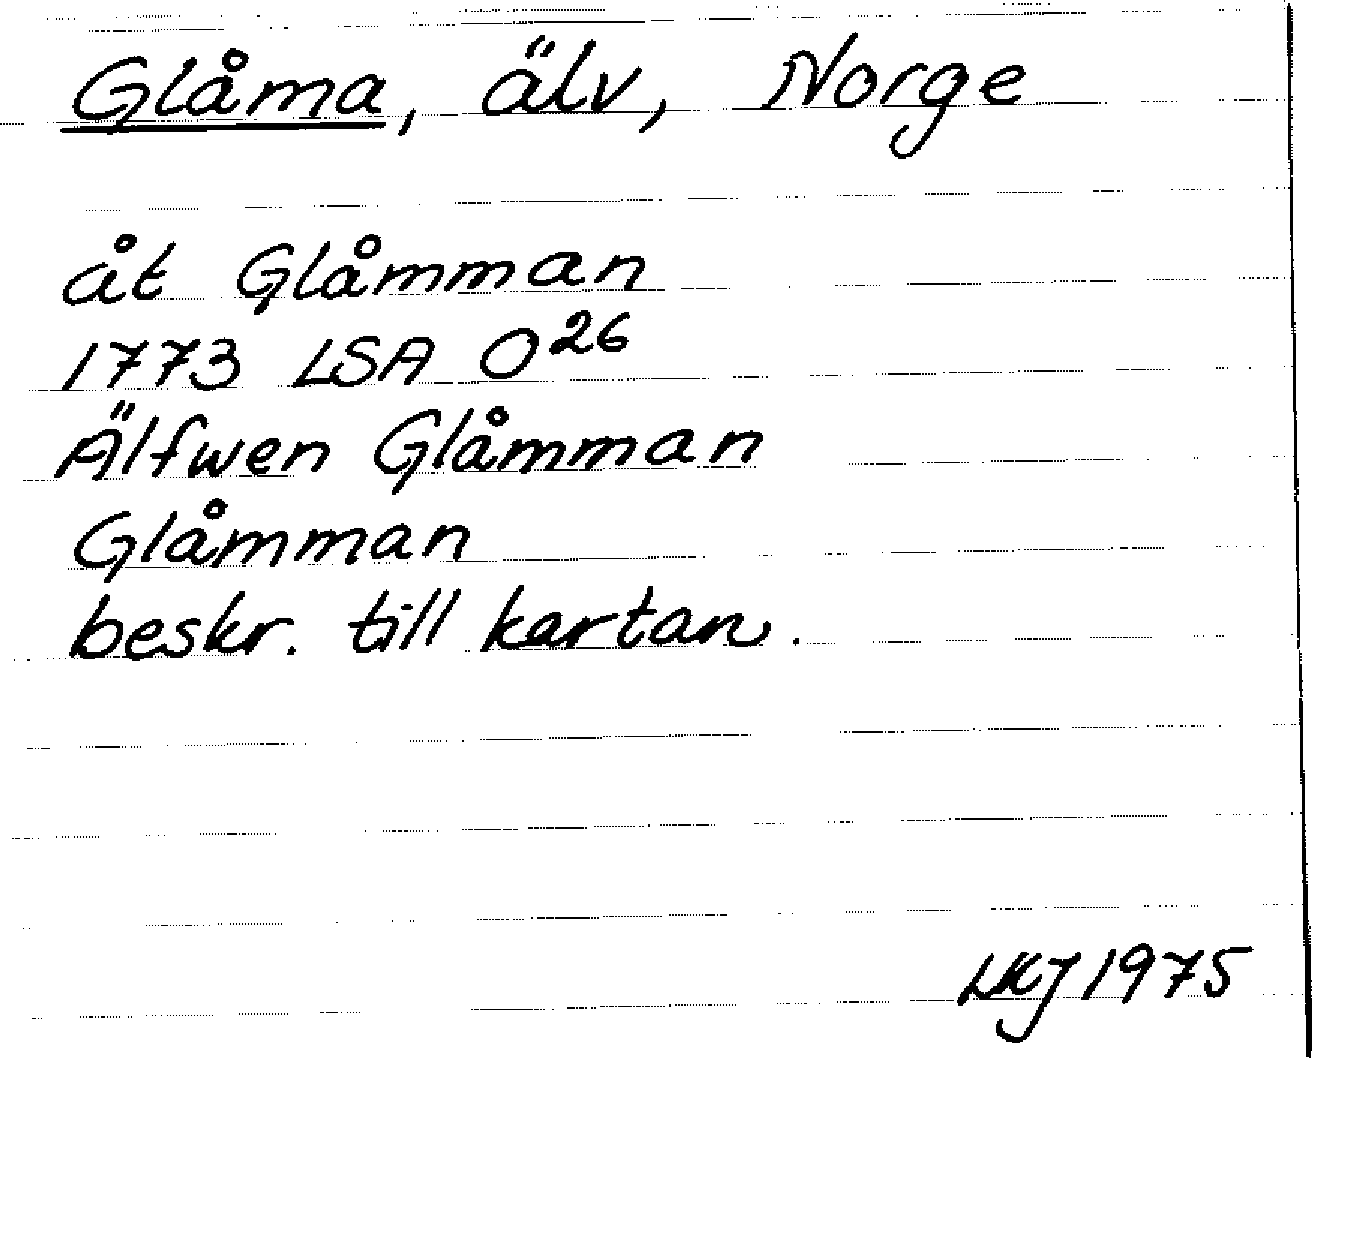 Glåma, älv, Norge
åt Glåmman
1773 LSA O²⁶
Älfwen Glåmman
Glåmman
beskr. till kartan.
LKJ 1975